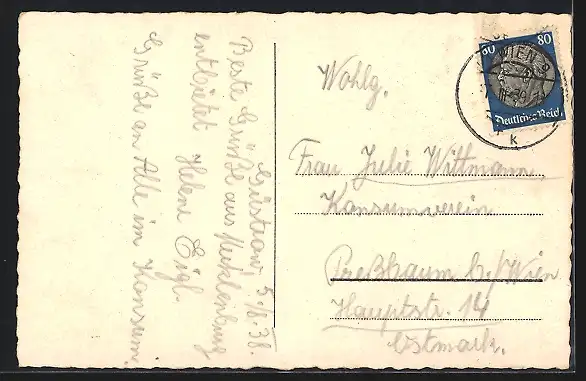 Güstrow 5.8.38.
Beste Grüße aus Mecklenburg
entbietet Helene Eigl.
Grüße an Alle im Konsum.
Wohlg.
Frau Julie Wittmann
Konsumverein
Preßbaum b/Wien
Hauptstr. 14
Ostmark.
80 80
WIEN
Deutsches Reich
k